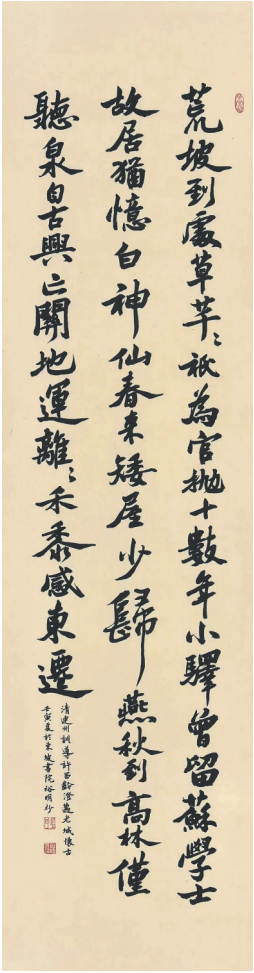 荒坡到處草芊〻祇為官拋十數年小驛曾留蘇學士
故居猶憶白神仙春来矮屋少歸燕秋到高林僅
聽泉自古興亡關地運離〻禾黍感東遷
清建州訓導許昌齡澄邁老城懷古
壬寅夏於東坡書院裕明抄